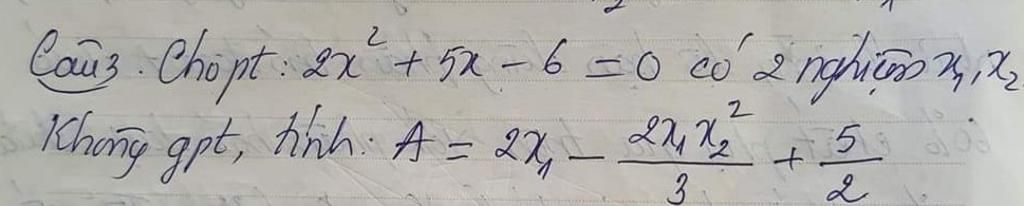 Câu 3. Cho pt: 2x² + 5x - 6 = 0 có 2 nghiệm x₁, x₂
Không gpt, tính: A = 2x₁ - 2x₁x₂²/3 + 5/2